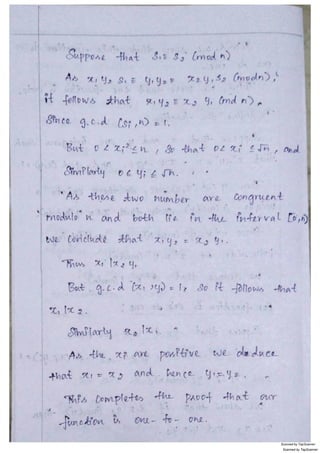 Suppose that S₁ ≡ S₂ (mod n)
As x₁ y₂ S₁ ≡ y₁ y₂ ≡ x₂ y₁ S₂ (modn),
it follows that x₁ y₂ ≡ x₂ y₁ (md n),
Since g.c.d (S₁, n) = 1.
But 0 < xᵢ² ≤ n, so that 0 < xᵢ ≤ √n, and
Similarly 0 < yᵢ ≤ √n.
As these two number are congruent
modulo n and both lie in the interval [0,n)
we conclude that x₁ y₂ = x₂ y₁.
Thus x₁ | x₂ y₁
But g.c.d (x₁, y₁) = 1, so it follows that
x₁ | x₂.
Similarly x₂ | x₁
As the xᵢ are positive we deduce
that x₁ = x₂ and hence y₁ = y₂.
This completes the proof that our
function is one-to-one.
Scanned by TapScanner
Scanned by TapScanner